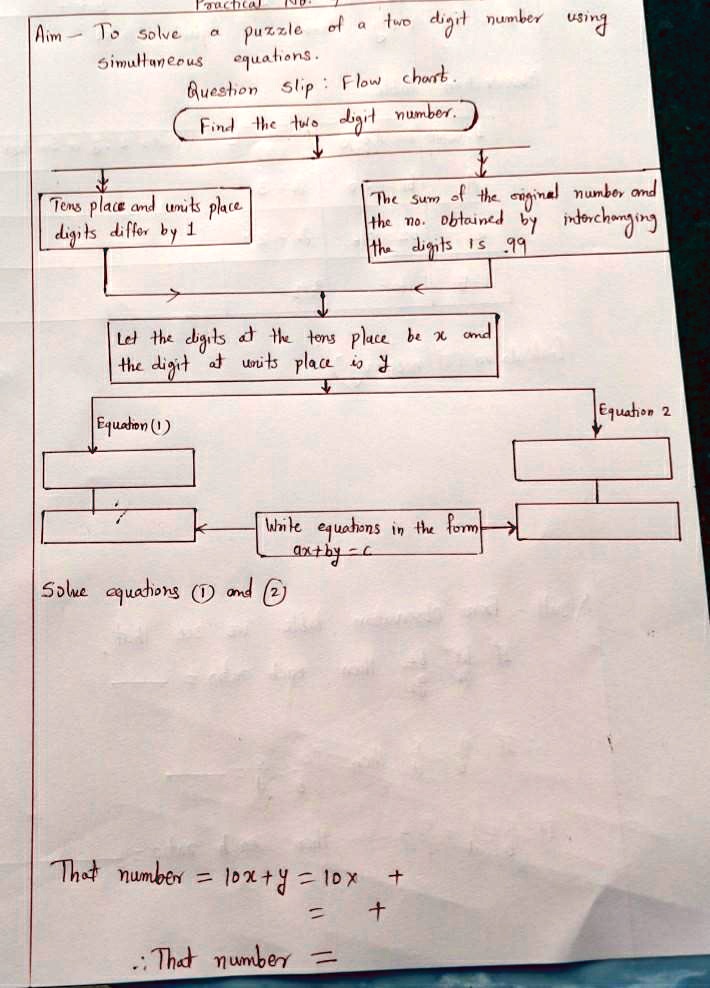 Practical No.
Aim – To solve a puzzle of a two digit number using
simultaneous equations.
Question slip : Flow chart.
Find the two digit number.
Tens place and units place
digits differ by 1
The sum of the original number and
the no. obtained by interchanging
the digits is .99
Let the digits at the tens place be x and
the digit at units place is y
Equation (1)
Equation 2
Write equations in the form
ax+by = c
Solve equations ① and ②
That number = 10x+y = 10x +
= +
∴ That number =